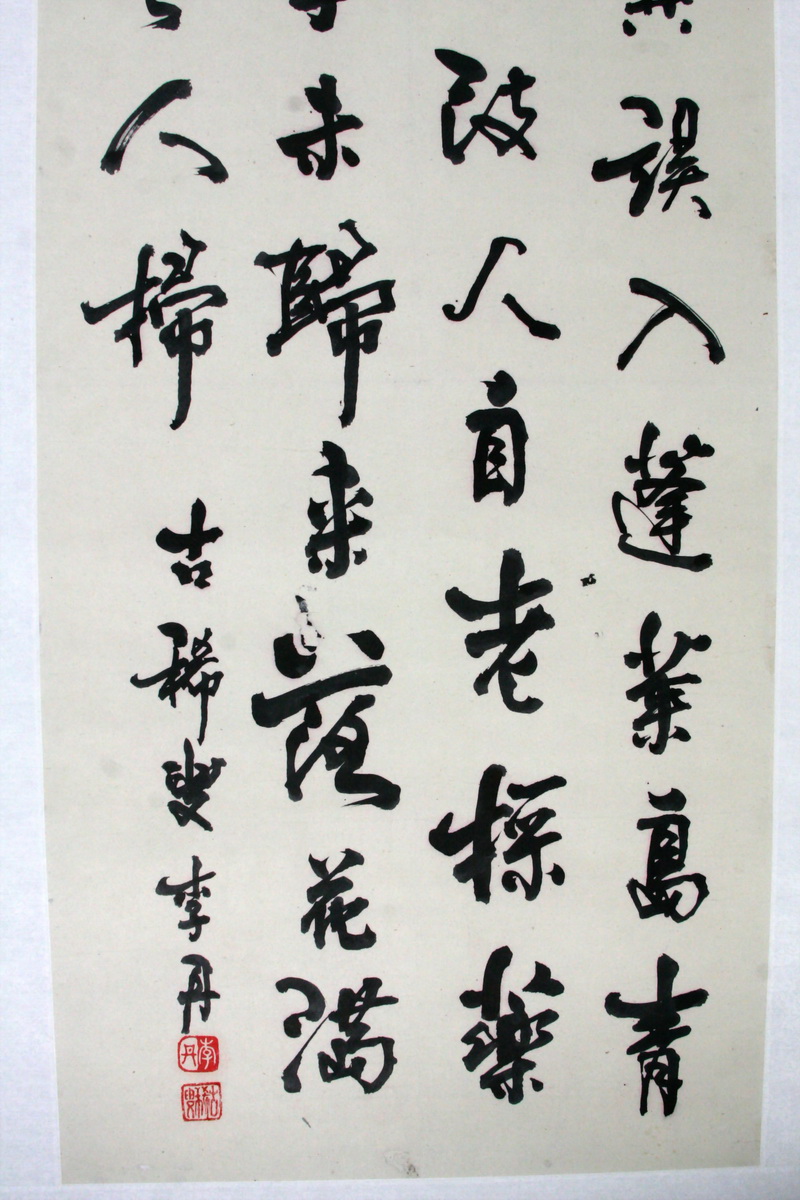 誤入蓬莱島青
改人自老採藥
未歸来落花滿
人掃 古稀叟李丹
李丹